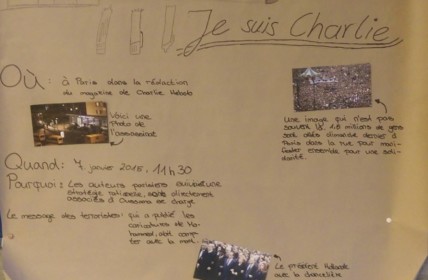 Je suis Charlie
Où: à Paris dans la rédaction
du magazine de Charlie Hebdo
Voici une
Photo de
l'assassinat
Une image qui n'est pas
souvent là, 1,6 millions de gens
sont allés dimanche dernier à
Paris dans la rue pour mani-
fester ensemble pour une soli-
darité.
Quand: 7. janvier 2015, 11h30
Pourquoi: Les auteurs parisiens
stratégie rationelle, directement
associés d'Oussama
Le message des terroristes: qui a publié les
caricatures de Mo-
hammed, doit comp-
ter avec la mort.
Le président Hollande
avec la